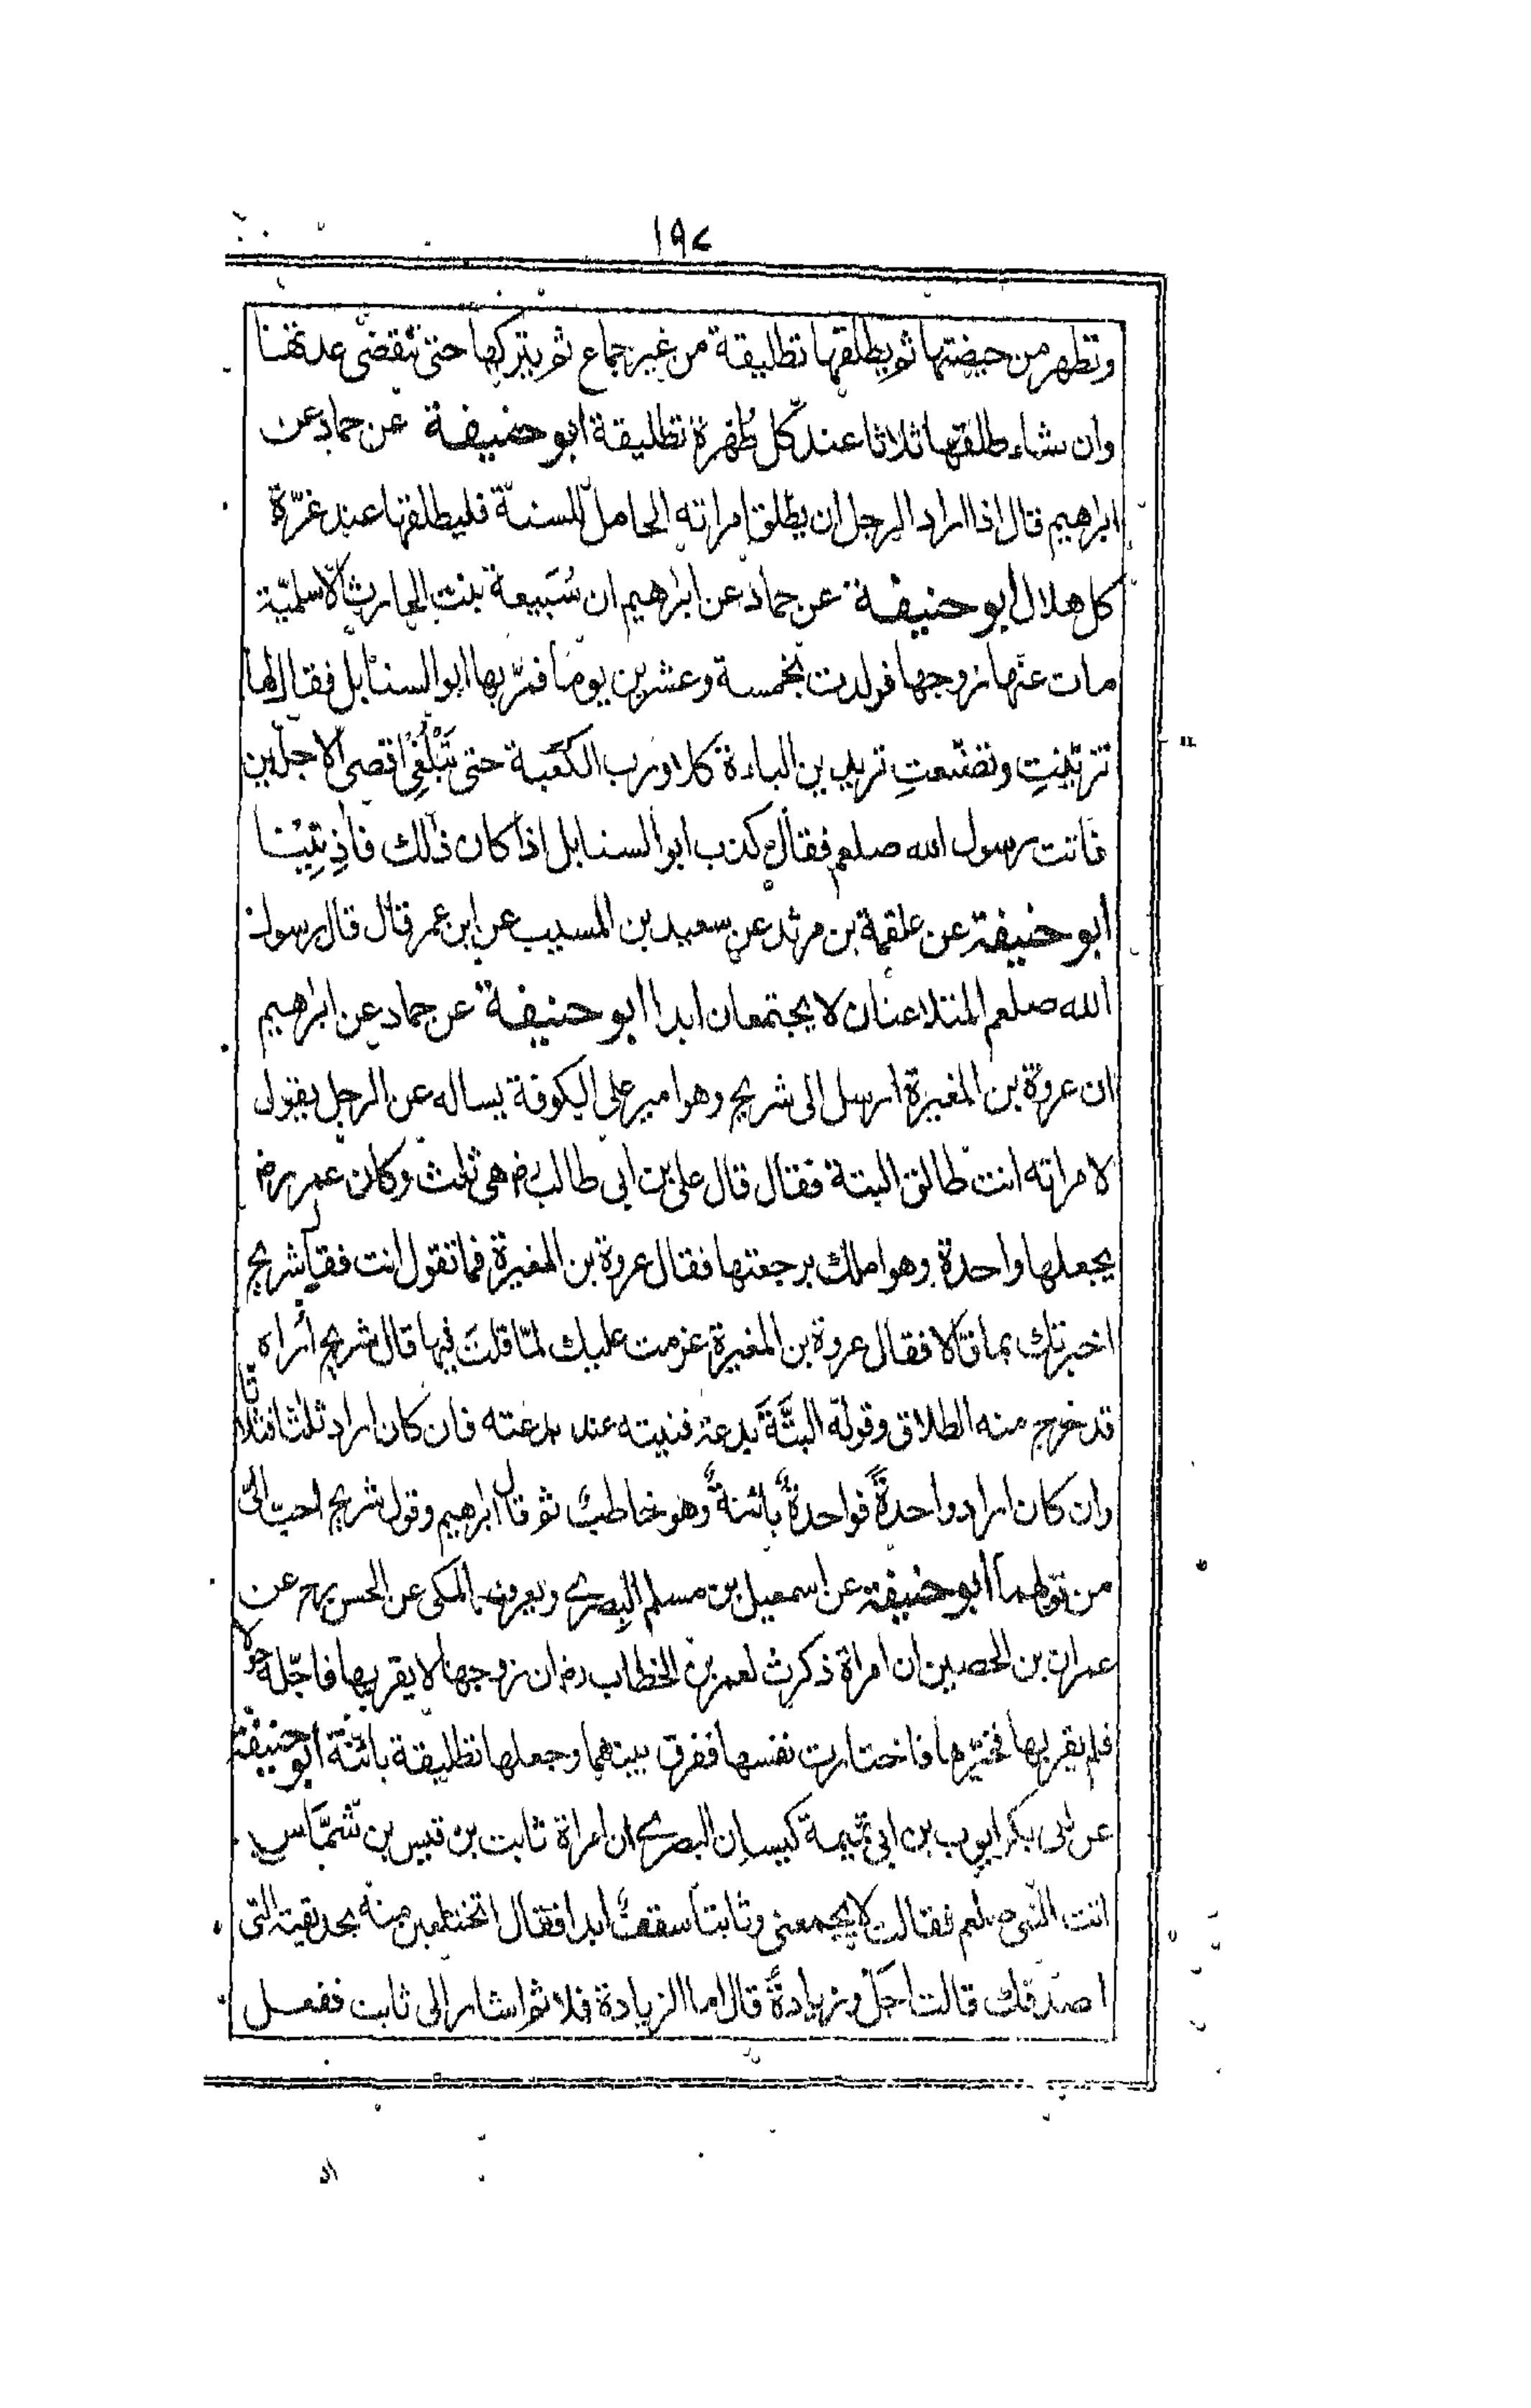 ١٩٢
وتطهر من حيضتها ثم يطلقها تطليقة من غير جماع ثم يتركها حتى تنقضى عدتها
وان شاء طلقها ثلاثا عند كل طُهرة تطليقة ابو حنيفة عن حماد عن
ابرهيم قال اذا اراد الرجل ان يطلق امراته الحامل للسنة فليطلقها عند غرّة
كل هلال ابو حنيفة عن حماد عن ابرهيم ان سُبَيعة بنت الحارث الاسلميّة
مات عنها زوجها فولدت بخمسة وعشرين يوما فمرّ بها ابو السنابل فقال لها
تزيّنتِ وتصنّعتِ تريدين الباءة كلا ورب الكعبة حتى تَبْلُغِى اقصى الاجلين
فاتت رسول الله صلعم فقال كذب ابو السنابل اذا كان ذلك فأذِنِيْنا
ابو حنيفة عن علقمة بن مرثد عن سعيد بن المسيب عن ابن عمر قال قال رسول
الله صلعم المتلاعنان لا يجتمعان ابدا ابو حنيفة عن حماد عن ابرهيم
ان عروة بن المغيرة ارسل الى شريح وهو امير على الكوفة يساله عن الرجل يقول
لامراته انت طالق البتة فقال قال على بن ابى طالب رض هى ثلث وكان عمر رض
يجعلها واحدة وهو املك برجعتها فقال عروة بن المغيرة فما تقول انت فقال شريح
اخبرتك بما قالا فقال عروة بن المغيرة عزمت عليك لمّا قلتَ فيها قال شريح أُراه
قد خرج منه الطلاق وقوله البتَّةَ بدعة فنيته عند بدعته فان كان اراد ثلثا فثلاثا
وان كان اراد واحدةً فواحدةٌ بائنةٌ وهو خاطبٌ ثم قال ابرهيم وقول شريح احب الىّ
من قولهما ابو حنيفة عن اسمعيل بن مسلم البصرى ويعرف بالمكى عن الحسن عن
عمران بن الحصين ان امراة ذكرت لعمر بن الخطاب رض ان زوجها لا يقربها فاجّله حولا
فلم يقربها فخيّرها فاختارت نفسها ففرق بينهما وجعلها تطليقة بائنة ابو حنيفة
عن ابى بكر ايوب بن ابى تميمة كيسان البصرى ان امراة ثابت بن قيس بن شمّاس
اتت النبى صلعم فقالت لا يجمعنى وثابتا سقفٌ ابدا فقال اتختلعين منه بحديقته التى
اصدقك قالت اجَلْ وزيادةً قال اما الزيادة فلا ثم اشار الى ثابت ففعل